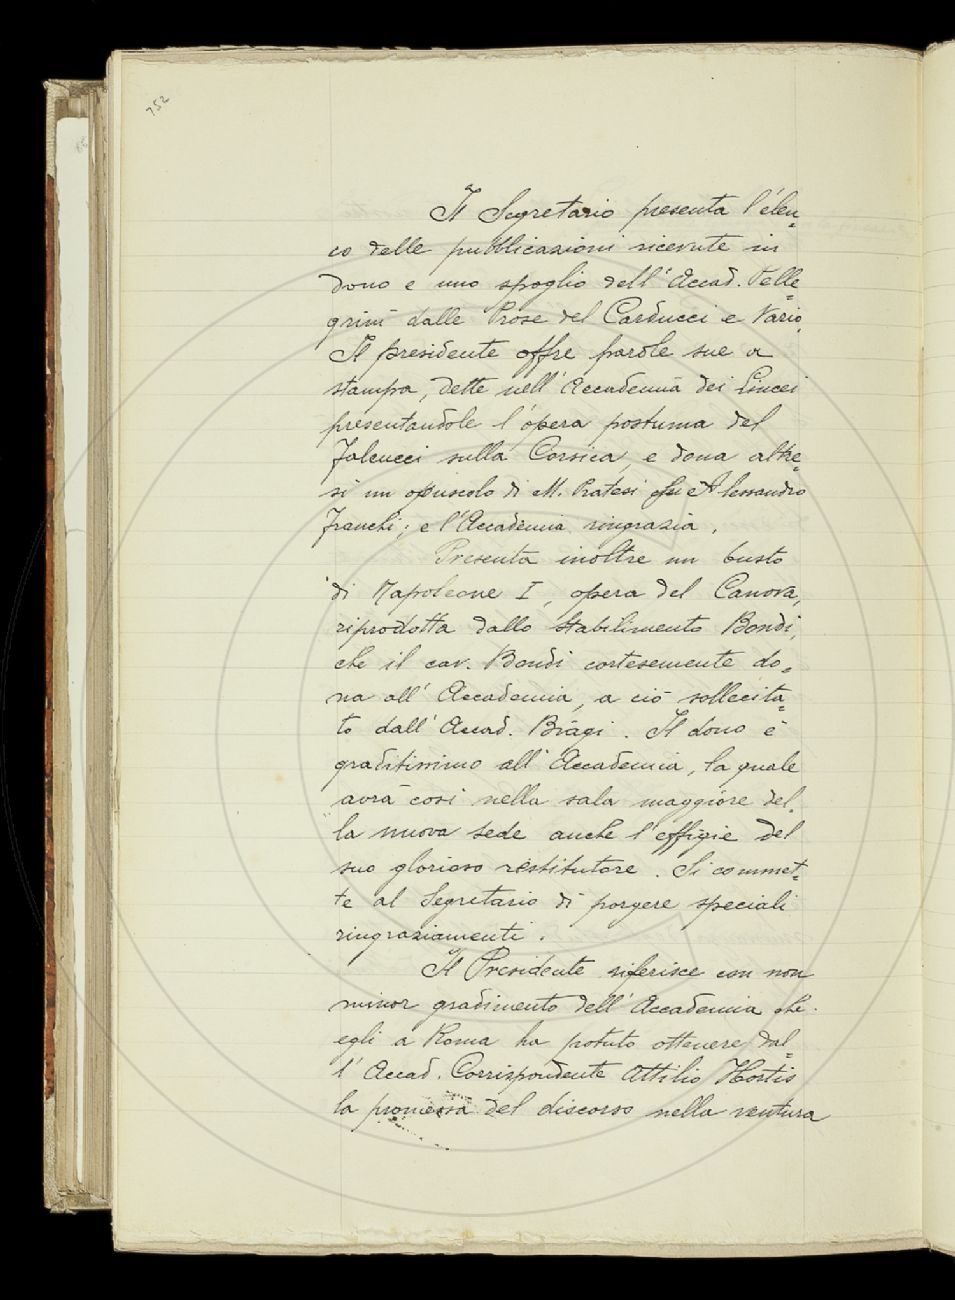 752
Il Segretario presenta l'elen=
co delle pubblicazioni ricevute in
dono e uno spoglio dell'Accad. Pelle=
grini dalle Prose del Carducci e Vario.
Il presidente offre parole sue a
stampa, dette nell'Accademia dei Lincei
presentandole l'opera postuma del
Falcucci sulla Corsica, e dona altre=
sì un opuscolo di M. Pratesi su Alessandro
Franchi; e l'Accademia ringrazia.
Presenta inoltre un busto
di Napoleone I, opera del Canova,
riprodotta dallo Stabilimento Bondi,
che il cav. Bondi cortesemente do=
na all'Accademia, a ciò sollecita=
to dall'Accad. Biagi. Il dono è
graditissimo all'Accademia, la quale
avrà così nella sala maggiore del=
la nuova sede anche l'effigie del
suo glorioso restitutore. Si commet=
te al Segretario di porgere speciali
ringraziamenti.
Il Presidente riferisce con non
minor gradimento dell'Accademia che
egli a Roma ha potuto ottenere dal=
l'Accad. Corrispondente Attilio Hortis
la promessa del discorso nella ventura